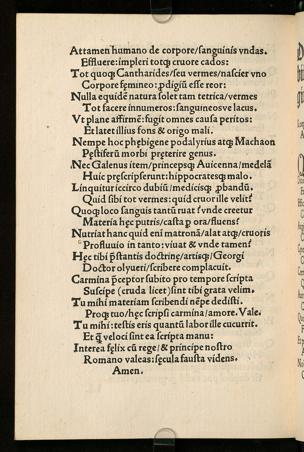 Attamen humano de corpore/sanguinis vndas.
Effluere: impleri totq; cruore cados:
Tot quoq; Cantharides/seu vermes/nascier vno
Corpore femineo: ꝓdigiũ esse reor:
Nulla equidẽ natura solet tam tetrica/vermes
Tot facere innumeros: sanguineosve lacus.
Vt plane affirmẽ: fugit omnes causa peritos:
Et latet illius fons & origo mali.
Nempe hoc phebigene podalyrius atq; Machaon
Pestiferũ morbi preterire genus.
Nec Galenus item/princepsq; Auicenna/medelã
Huic pręscripserunt: hippocratesq; malo.
Linquitur iccirco dubiũ/medicisq; ꝓbandũ.
Quid sibi tot vermes: quid cruor ille velit?
Quoq; loco sanguis tantũ ruat? vnde creetur
Materia hęc putris/casta ꝑ ora/fluens?
Nutriat hanc quid eni matronã/alat atq; cruoris
Profluuio in tanto: viuat & vnde tamen?
Hęc tibi p̃stantis doctrinę/artisq; Georgi
Doctor olyueri/scribere complacuit.
Carmina p̃ceptor subito pro tempore scripta
Suscipe (cruda licet) sint tibi grata velim.
Tu mihi materiam scribendi nẽpe dedisti.
Proq; tuo/hęc scripsi carmina/amore. Vale.
Tu mihi: testis eris quantũ labor ille cucurrit.
Et q̃ veloci sint ea scripta manu:
Interea fęlix cũ rege/& principe nostro
Romano valeas: sęcula fausta videns.
Amen.